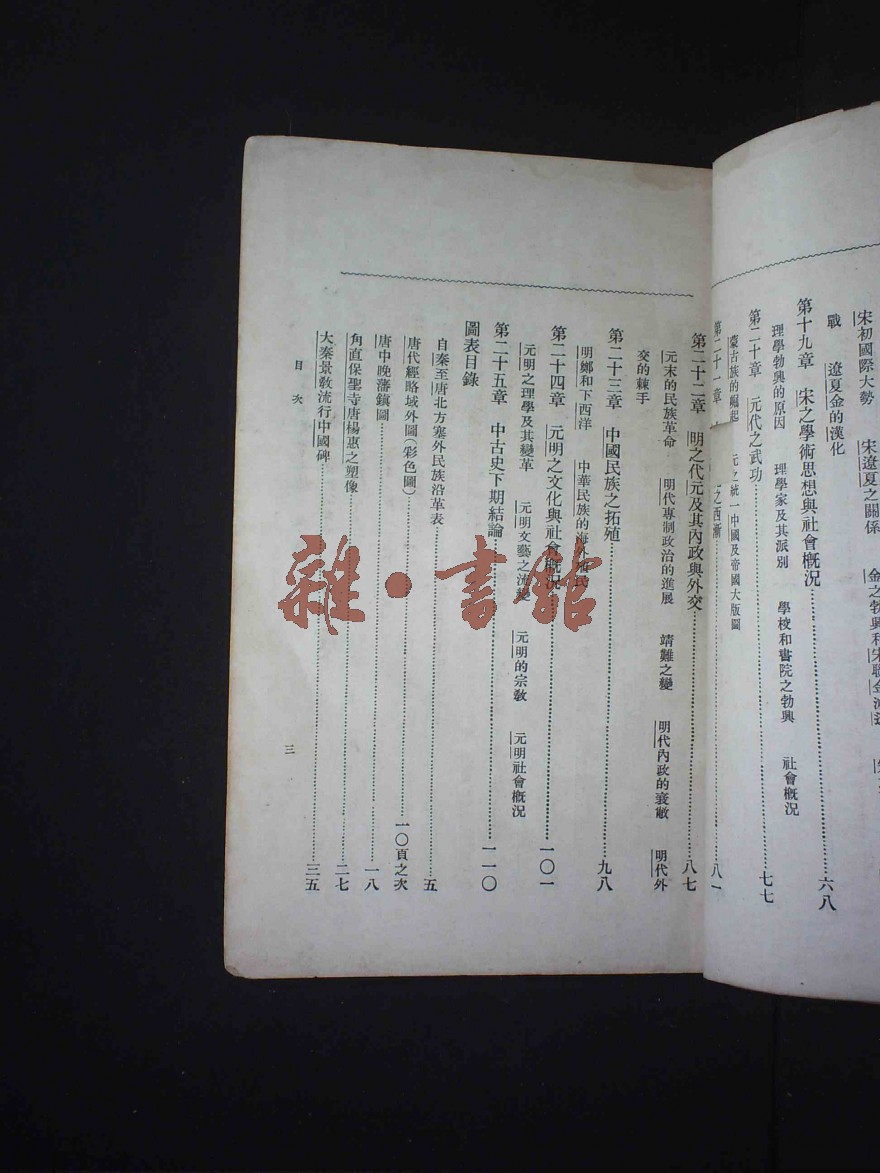 宋初國際大勢　宋遼夏之關係　金之勃興和宋聯金滅遼
戰　遼夏金的漢化
第十九章　宋之學術思想與社會槪況……六八
理學勃興的原因　理學家及其派別　學校和書院之勃興　社會槪況
第二十章　元代之武功……七七
蒙古族的崛起　元之統一中國及帝國大版圖
第二十一章　之西漸……八一
第二十二章　明之代元及其內政與外交……八七
元末的民族革命　明代專制政治的進展　靖難之變　明代內政的衰敝　明代外
交的棘手
第二十三章　中國民族之拓殖……九八
明鄭和下西洋　中華民族的海外殖民
第二十四章　元明之文化與社會槪況……一〇一
元明之理學及其變革　元明文藝之流變　元明的宗敎　元明社會槪況
第二十五章　中古史下期結論……一一〇
圖表目錄
自秦至唐北方塞外民族沿革表……五
唐代經略域外圖(彩色圖)……一〇頁之次
唐中晚藩鎮圖……一八
角直保聖寺唐楊惠之塑像……二七
大秦景敎流行中國碑……三五
目次
三
雜·書館